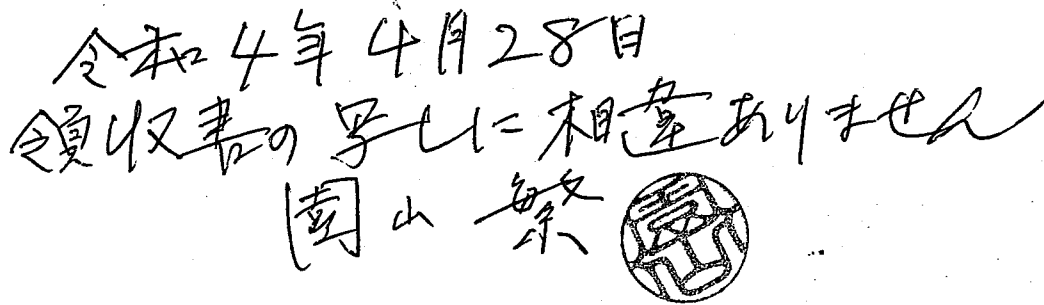 令和4年4月28日
領収書の写しに相違ありません
園山 繁